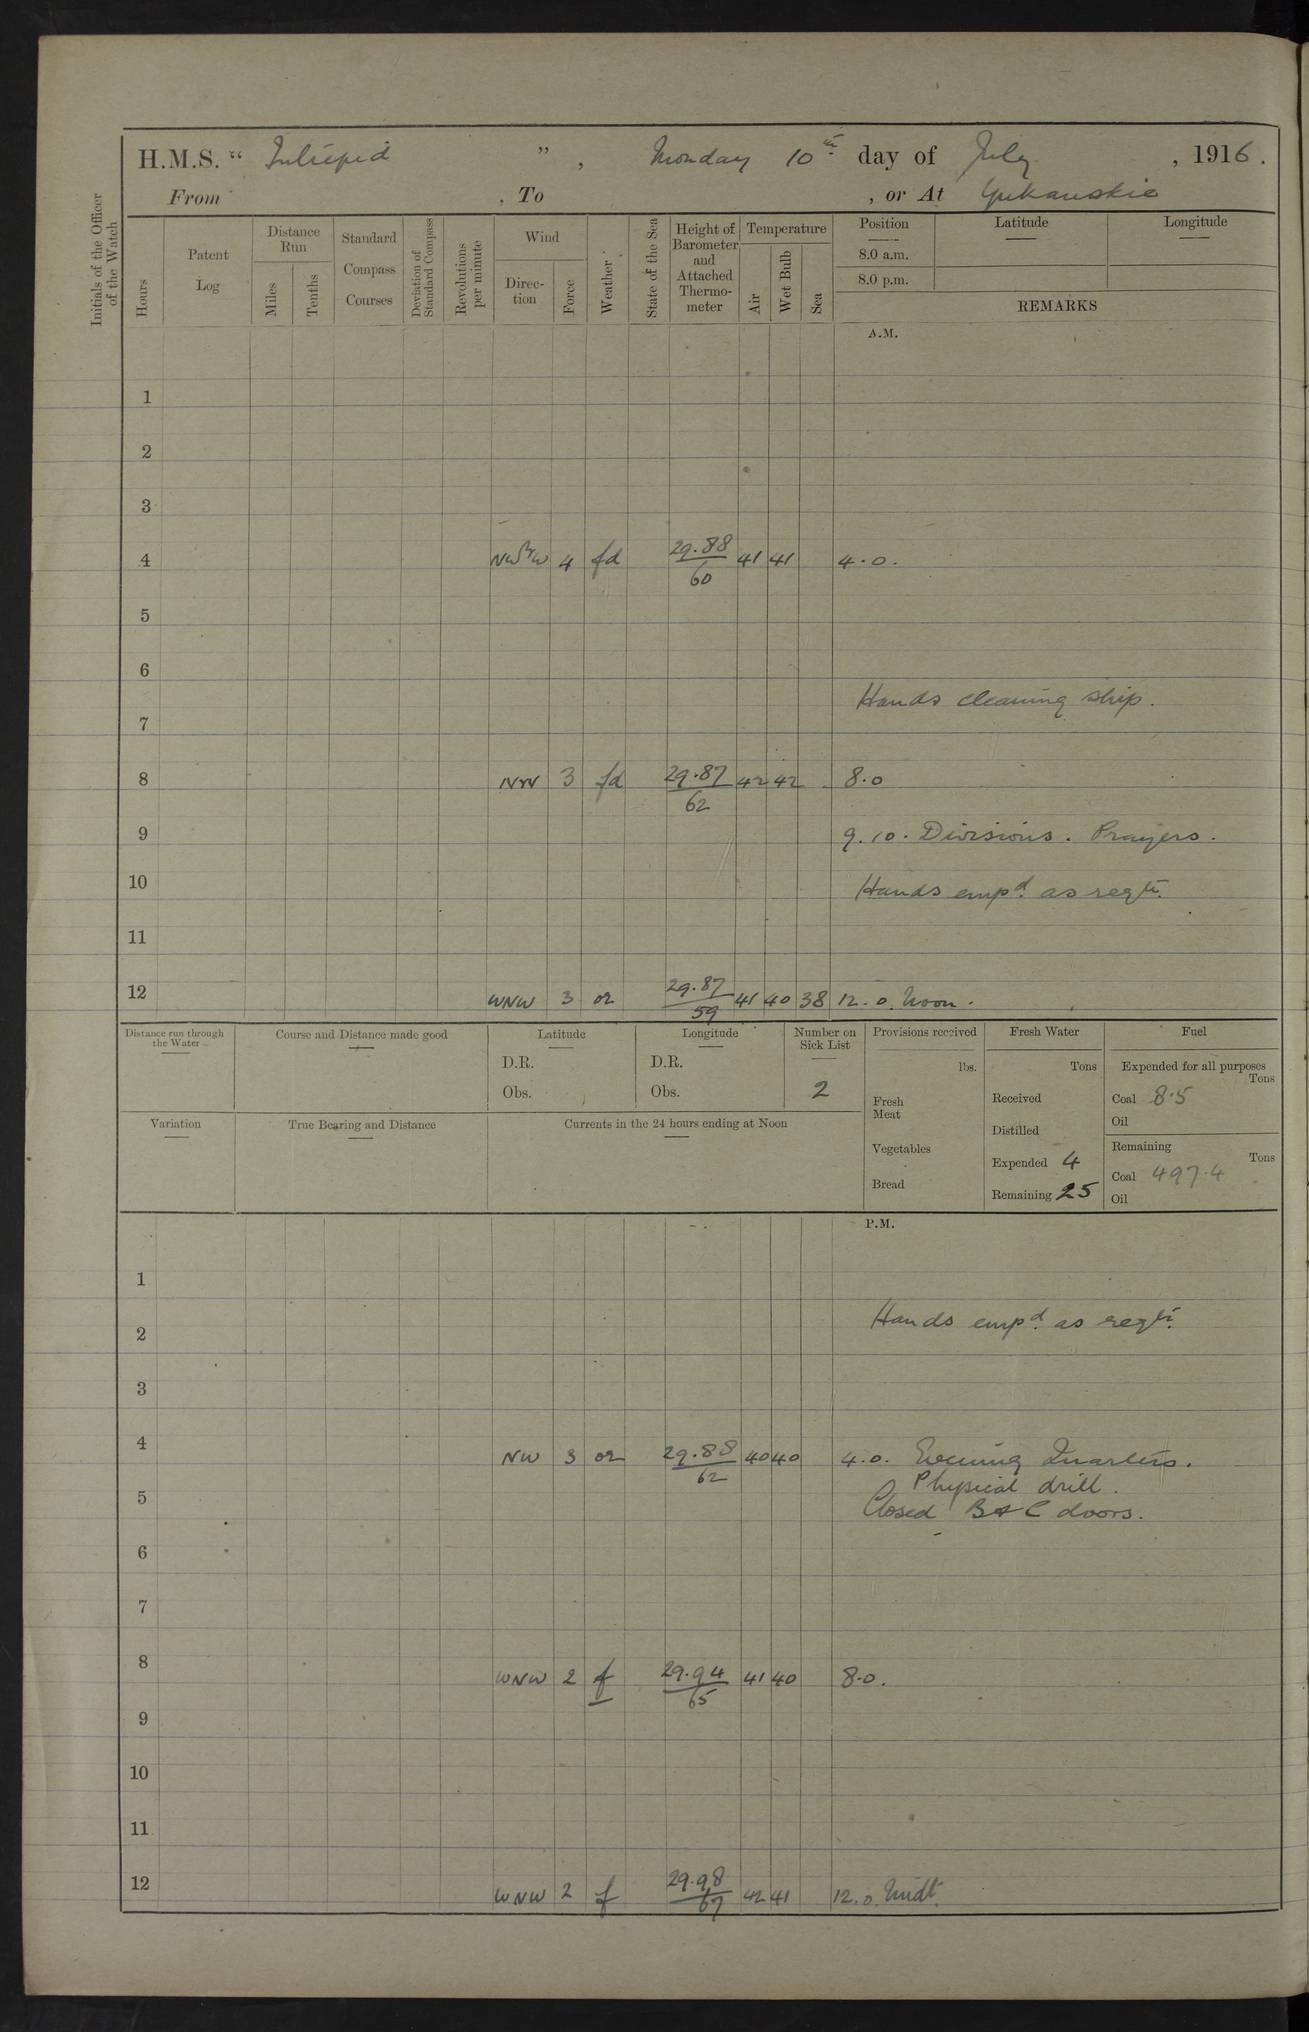 H.M.S. " Intrepid ", Monday 10th day of July, 1916.
From , To , or At Yukanskie
Initials of the Officer of the Watch
Hours
Patent Log
Distance Run
Miles
Tenths
Standard Compass Courses
Deviation of Standard Compass
Revolutions per minute
Wind
Direction
Force
Weather
State of the Sea
Height of Barometer and Attached Thermometer
Temperature
Air
Wet Bulb
Sea
Position
8.0 a.m.
8.0 p.m.
Latitude
Longitude
REMARKS
A.M.
1
2
3
4 NWbyW 4 fd 29.88/60 41 41 4.0.
5
6
Hands cleaning ship.
7
8 NW 3 fd 29.87/62 42 42 8.0
9 9.10. Divisions. Prayers.
10 Hands emp'd. as req'te.
11
12 WNW 3 or 29.87/59 41 40 38 12.0. Noon.
Distance run through the Water
Course and Distance made good
Latitude
D.R.
Obs.
Longitude
D.R.
Obs.
Number on Sick List
2
Provisions received
lbs.
Fresh Meat
Vegetables
Bread
Fresh Water
Tons
Received
Distilled
Expended 4
Remaining 25
Fuel
Expended for all purposes
Tons
Coal 8.5
Oil
Remaining
Tons
Coal 497.4
Oil
Variation
True Bearing and Distance
Currents in the 24 hours ending at Noon
P.M.
1
Hands emp'd. as req'te.
2
3
4 NW 3 or 29.88/62 40 40 4.0. Evening Quarters.
Physical drill.
5 Closed B & C doors.
6
7
8 WNW 2 f 29.94/65 41 40 8.0.
9
10
11
12 WNW 2 f 29.98/67 42 41 12.0. Midt.